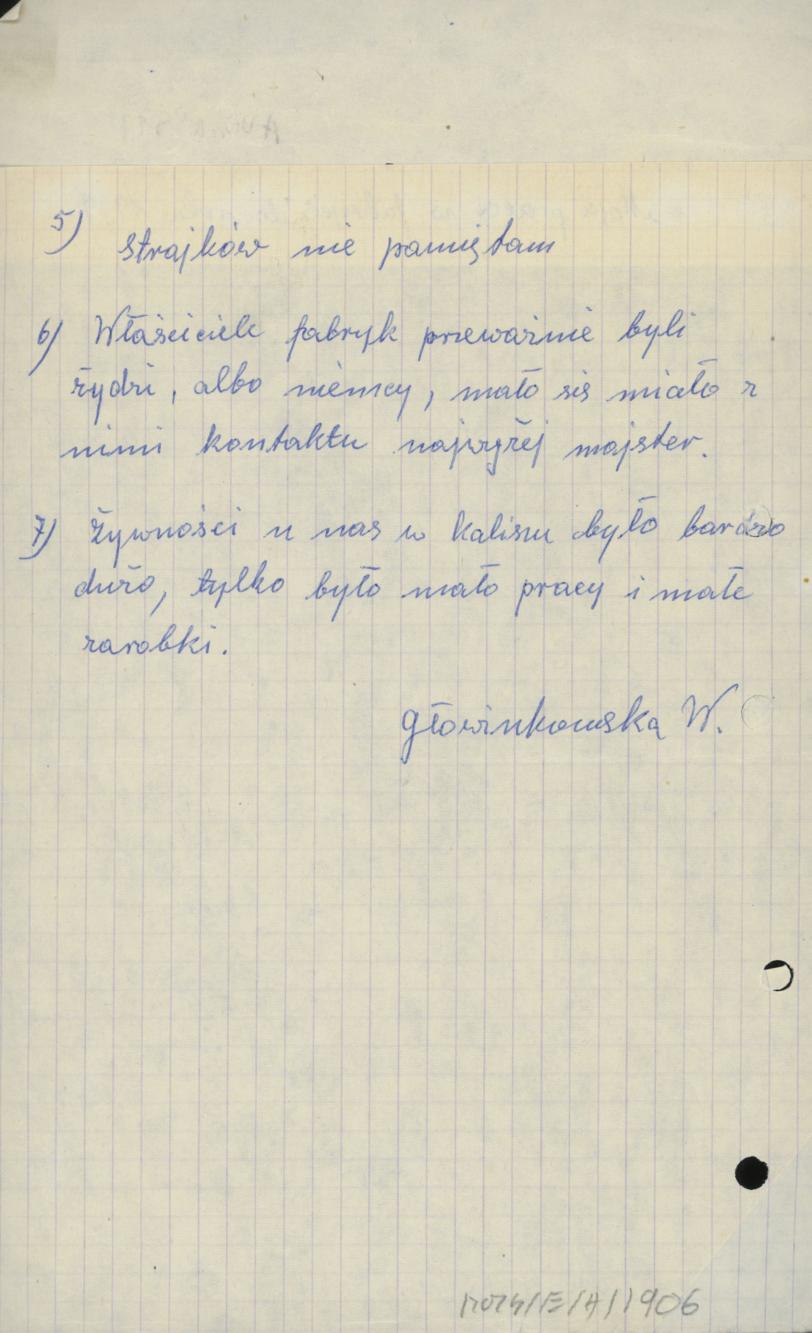 5) Strajków nie pamiętam
6) Właściciele fabryk przeważnie byli
żydzi, albo niemcy, mało się miało z
nimi kontaktu najwyżej majster.
7) Żywności u nas w Kaliszu było bardzo
dużo, tylko było mało pracy i małe
zarobki.
Głowinkowska W.
/E/A/1906